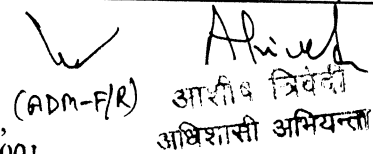 (ADM-F/R)
आशीष त्रिवेदी
अधिशासी अभियन्ता